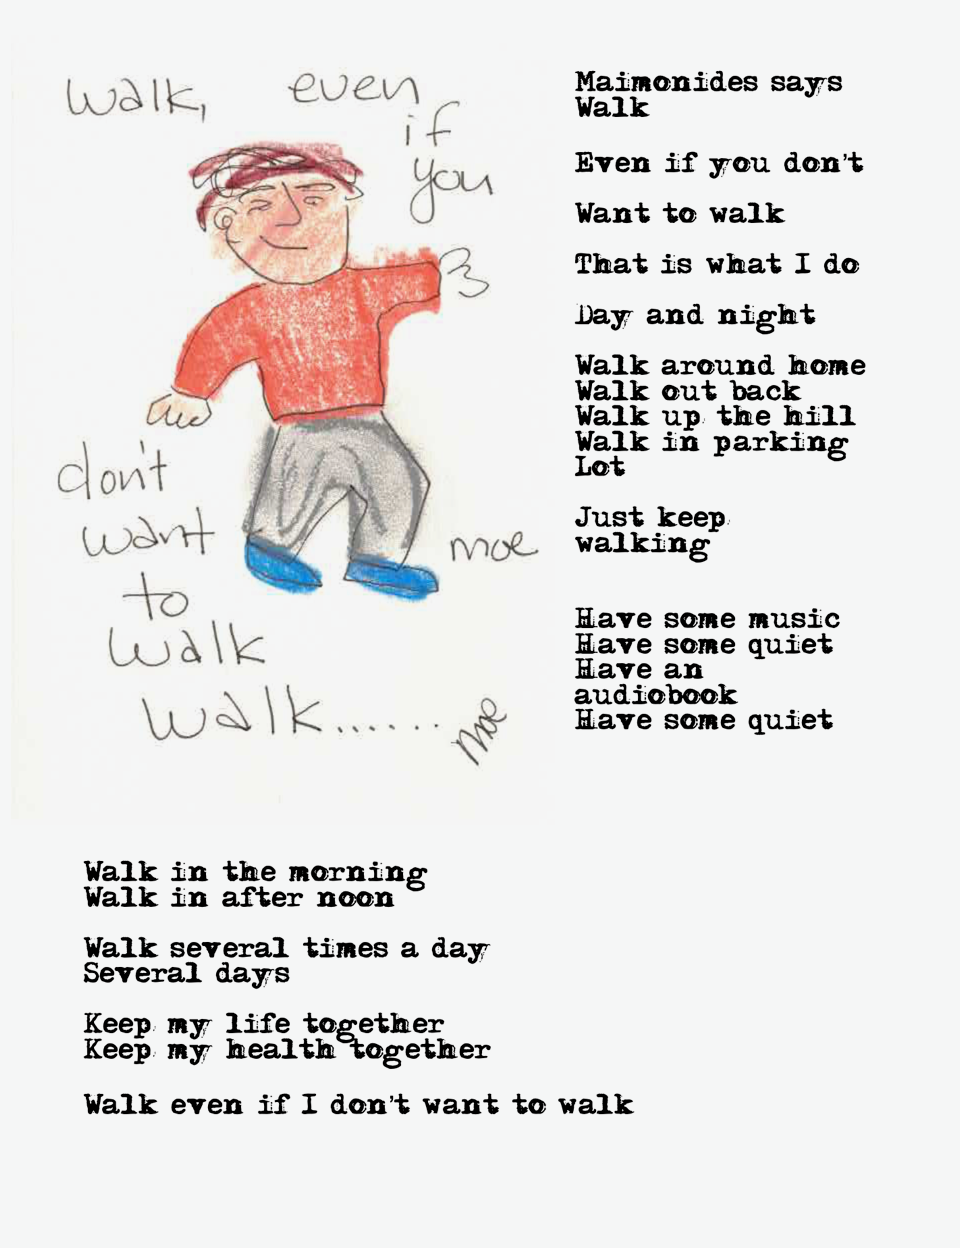 walk, even
if
you
don't
want
to
walk
walk......
moe
moe
Maimonides says
Walk
Even if you don't
Want to walk
That is what I do
Day and night
Walk around home
Walk out back
Walk up the hill
Walk in parking
Lot
Just keep
walking
Have some music
Have some quiet
Have an
audiobook
Have some quiet
Walk in the morning
Walk in after noon
Walk several times a day
Several days
Keep my life together
Keep my health together
Walk even if I don't want to walk